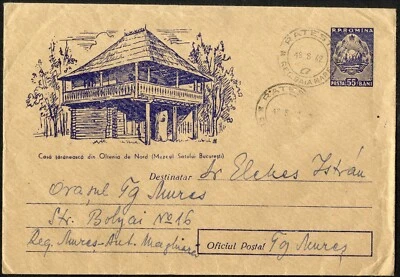 R.P. ROMINA
POSTA 55 BANI
Casă țărănească din Oltenia de Nord (Muzeul Satului București)
Destinatar Dr Elekes István
Orașul Tg Mureș
Str. Bolyai No 16
Reg. Mureș-Aut. Maghiară
Oficiul Poștal Tg Mureș